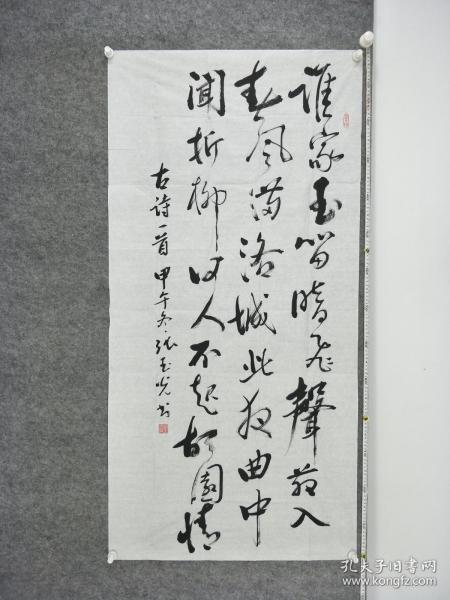 谁家玉笛暗飞聲散入
春风满洛城此夜曲中
闻折柳何人不起故園情
古诗一首 甲午冬 张玉光书
孔夫子旧书网
www.kongfz.com